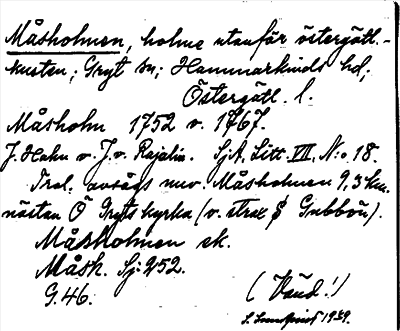 Måsholmen, holme utanför östergötl.-
kusten; Gryt sn; Hammarkinds hd;
Östergötl. l.
Måsholm 1752 o. 1767.
J. Hahn o. J. v. Rajalin. SjA, Litt. VII. N:o 18.
Trol. avsågs nuv. Måsholmen 9,3 km.
nästan Ö Gryts kyrka (o. strax S Gubbön).
Måsholmen ek.
Måsh. Sj: 252.
G. 46.
( Vänd!)
S. 1939.